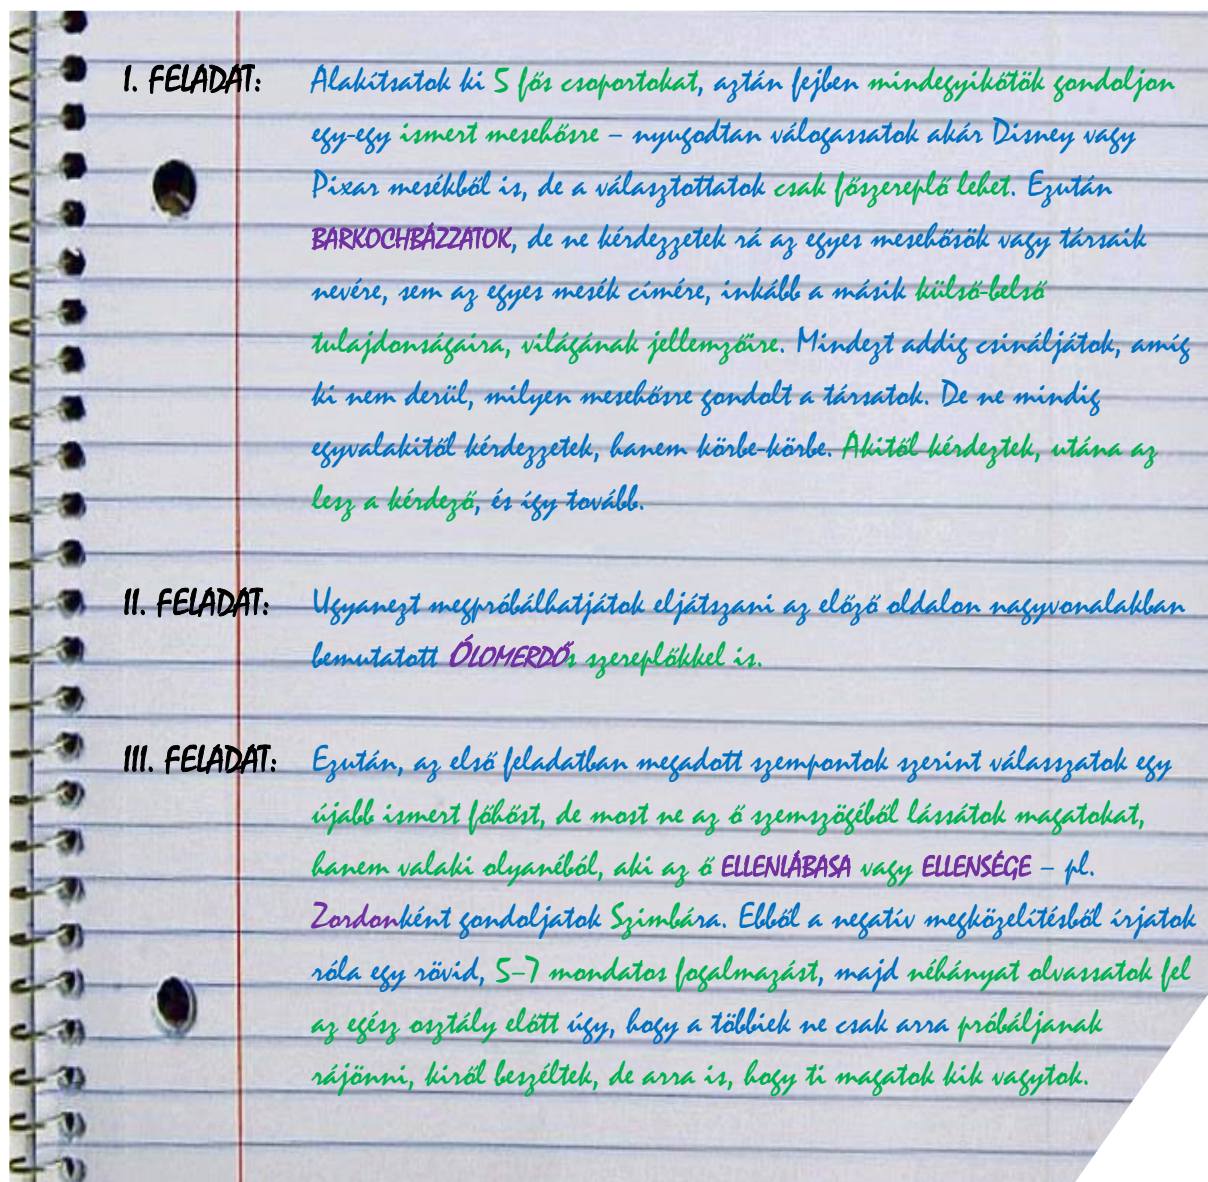 I. FELADAT: Alakítsatok ki 5 fős csoportokat, aztán fejben mindegyikőtök gondoljon
egy-egy ismert mesehősre – nyugodtan válogassatok akár Disney vagy
Pixar mesékből is, de a választottatok csak főszereplő lehet. Ezután
BARKOCHBÁZZATOK, de ne kérdezzetek rá az egyes mesehősök vagy társaik
nevére, sem az egyes mesék címére, inkább a másik külső-belső
tulajdonságaira, világának jellemzőire. Mindezt addig csináljátok, amíg
ki nem derül, milyen mesehősre gondolt a társatok. De ne mindig
egyvalakitől kérdezzetek, hanem körbe-körbe. Akitől kérdeztek, utána az
lesz a kérdező, és így tovább.
II. FELADAT: Ugyanezt megpróbálhatjátok eljátszani az előző oldalon nagyvonalakban
bemutatott ÓLOMERDŐs szereplőkkel is.
III. FELADAT: Ezután, az első feladatban megadott szempontok szerint válasszatok egy
újabb ismert főhőst, de most ne az ő szemszögéből lássátok magatokat,
hanem valaki olyanéból, aki az ő ELLENLÁBASA vagy ELLENSÉGE – pl.
Zordonként gondoljatok Szimbára. Ebből a negatív megközelítésből írjatok
róla egy rövid, 5–7 mondatos fogalmazást, majd néhányat olvassatok fel
az egész osztály előtt úgy, hogy a többiek ne csak arra próbáljanak
rájönni, kiről beszéltek, de arra is, hogy ti magatok kik vagytok.